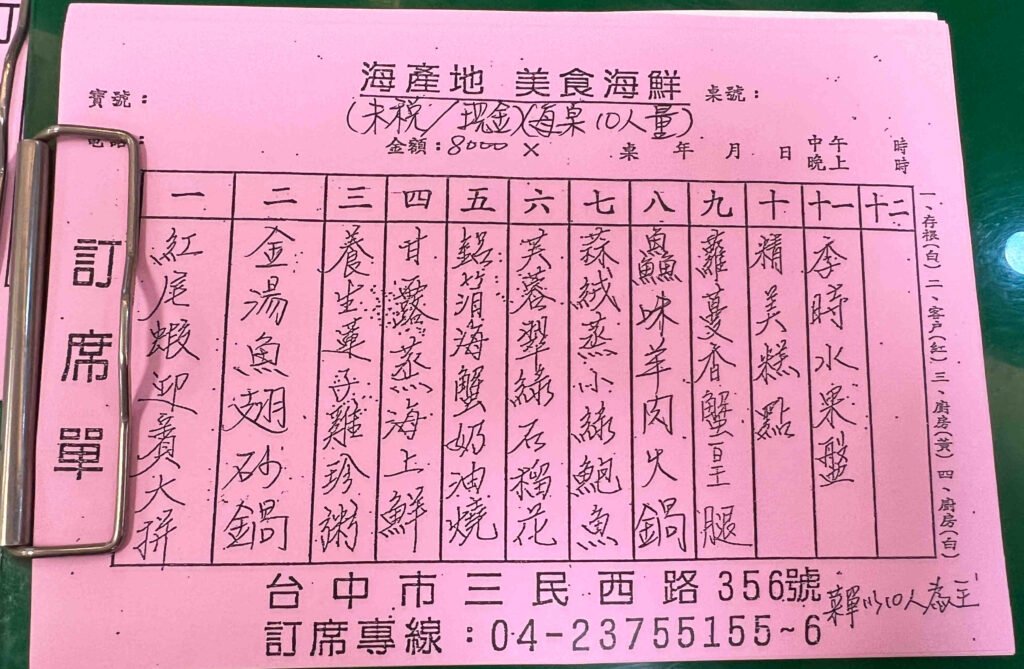 海產地 美食海鮮
寶號：
桌號：
(未稅/現金)(每桌10人量)
金額：8000 × 桌 年 月 日 中午 晚上 時 時
訂席單
一 二 三 四 五 六 七 八 九 十 十一 十二
紅尾蝦迎賓大拼
金湯魚翅砂鍋
養生蓮子雞珍粥
甘露蒸海上鮮
鋁箔海蟹奶油燒
芙蓉翠綠石榴花
蒜絨蒸小綠鮑魚
鱻味羊肉火鍋
蘿蔓香蟹皇腿
精美糕點
季時水果盤
一、存根(白) 二、客戶(紅) 三、廚房(黃) 四、廚房(白)
台中市三民西路356號
訂席專線：04-23755155~6
菜單以10人為主